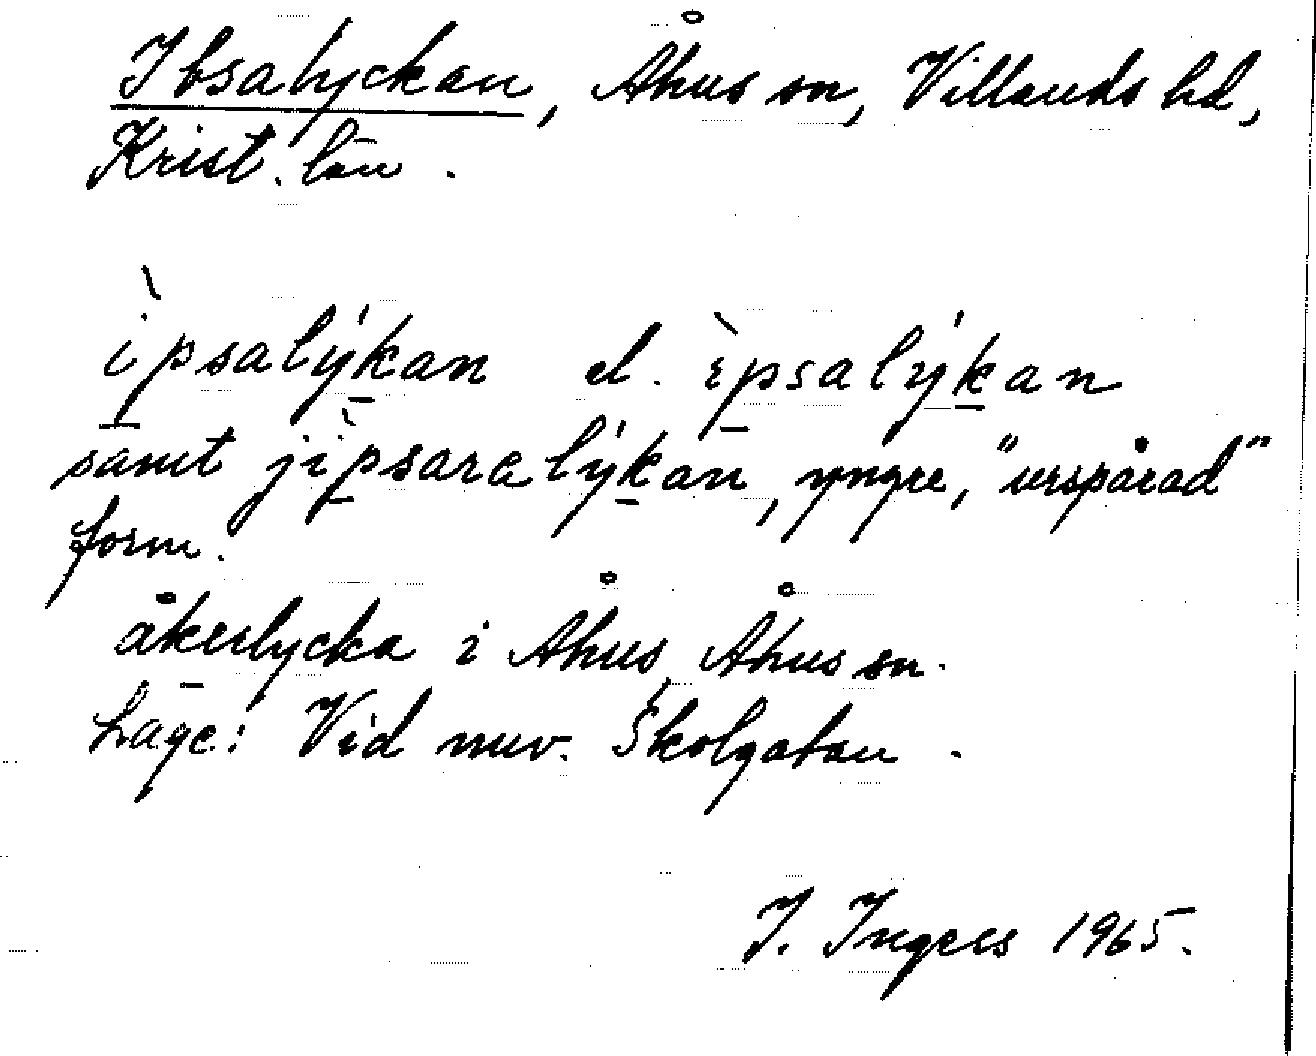 Ibsalyckan, Åhus sn, Villands hd,
Krist. län.
ìpsalýkan el. ìpsalýkan
samt jìpsaralýkan, yngre, "urspårad"
form.
åkerlycka i Åhus, Åhus sn.
Läge: Vid nuv. Skolgatan.
I. Ingers 1965.